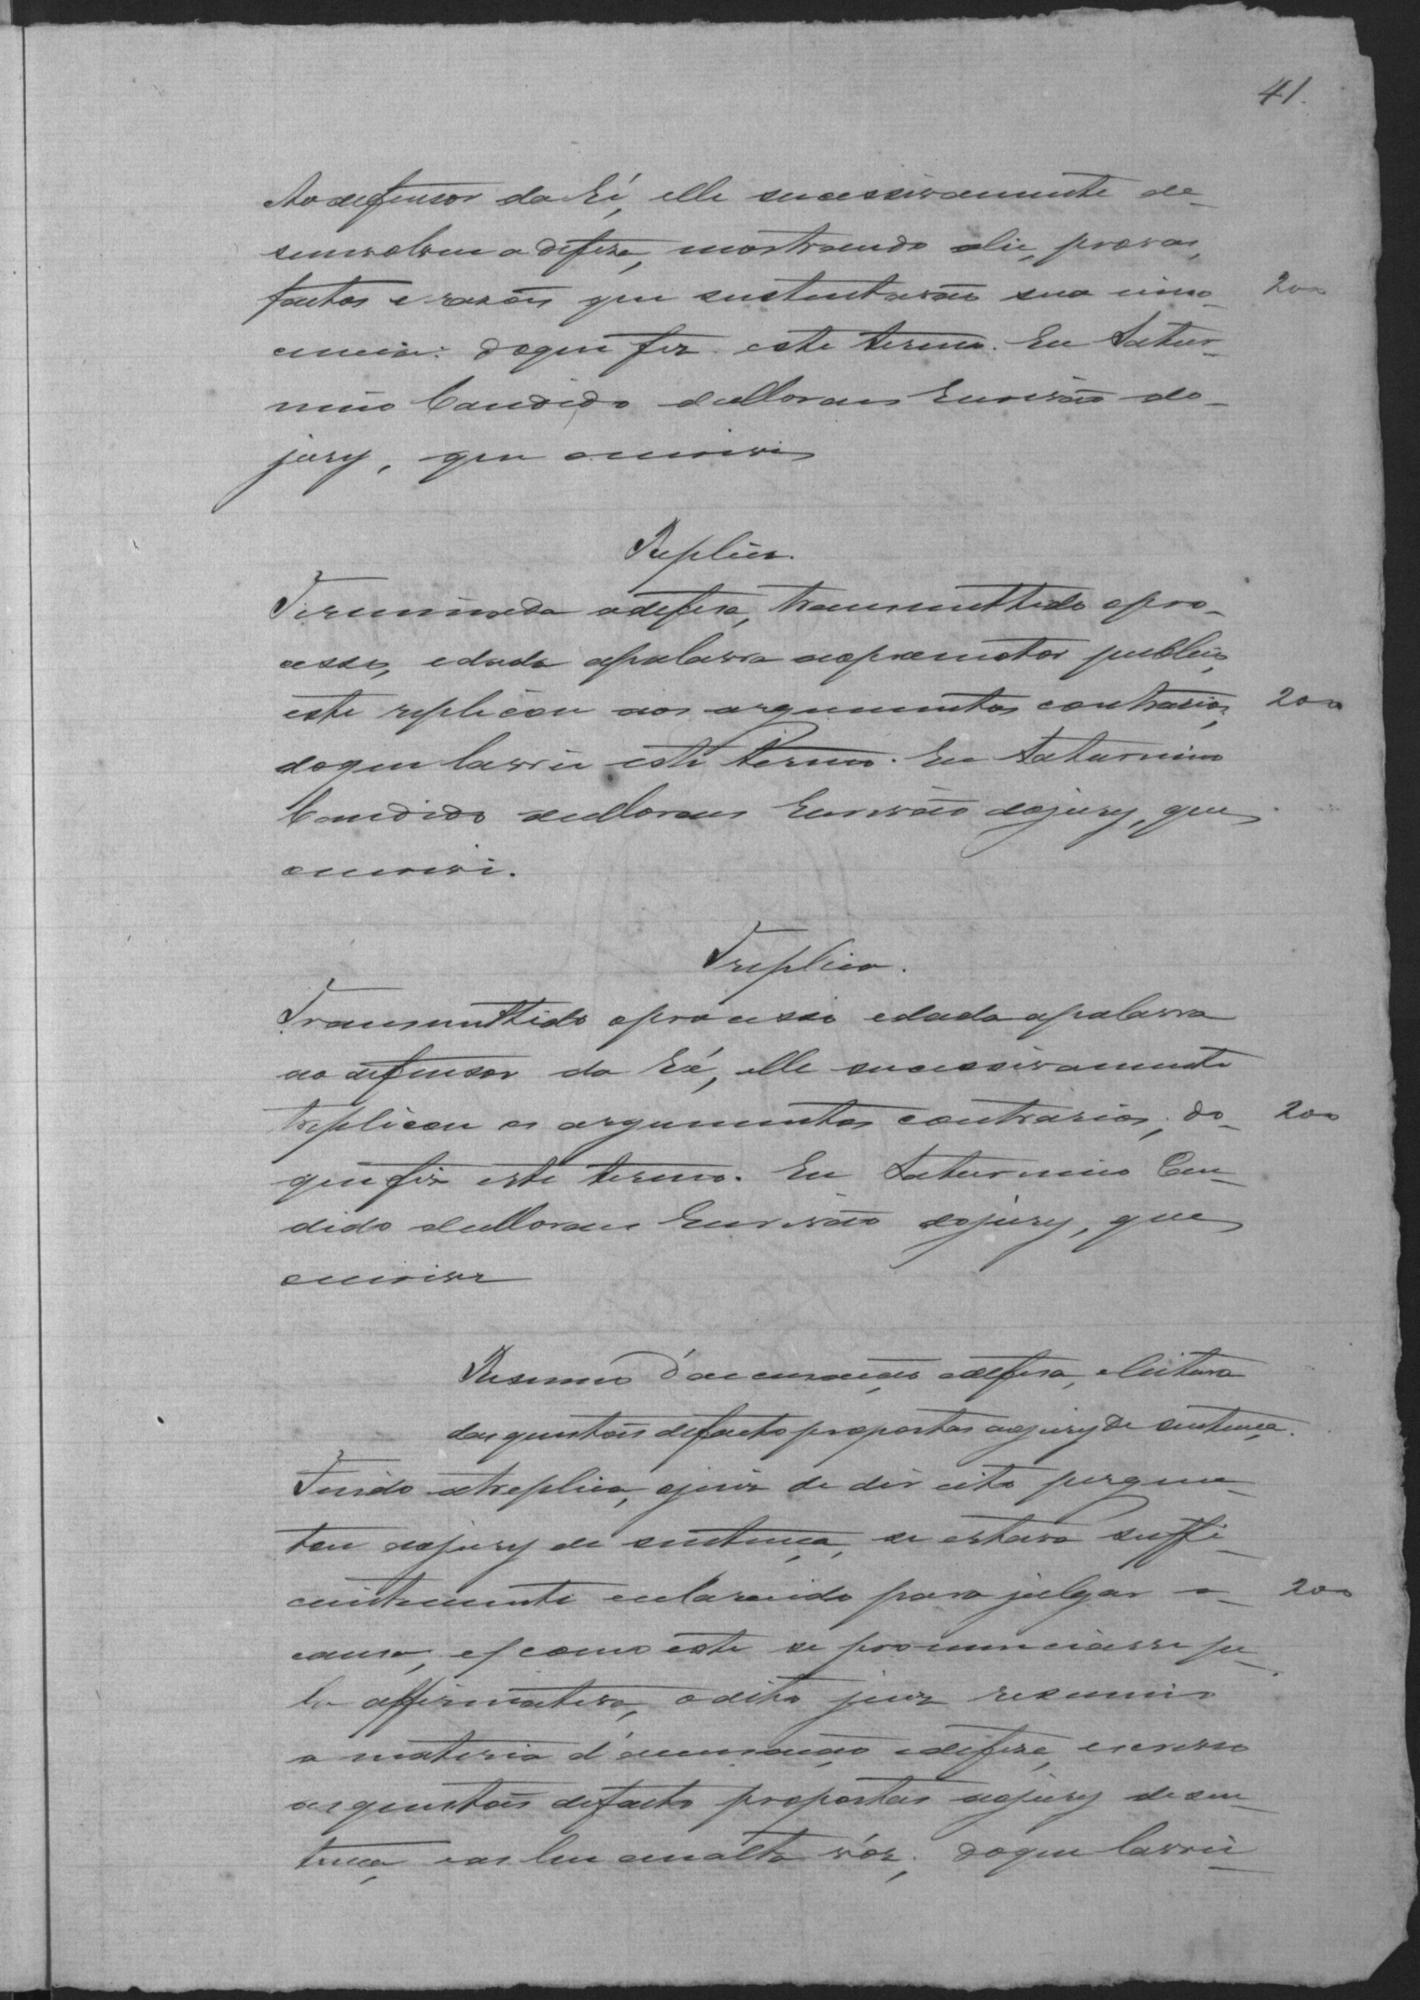 41.
Ao defensor da Ré, elle successivamente de-
senvolveu a defesa, mostrando a lei, provas,
factos e razões que sustentavão sua inno- 200
cencia: do que fiz este termo. Eu Satur-
nino Candido de Moraes Escrivão do
jury, que escrevi
Replica.
Terminada a defesa, transmittido o pro-
cesso, e dada a palavra ao promotor publico,
este replicou aos argumentos contrarios, 200
do que lavrei este termo. Eu Saturnino
Candido de Moraes Escrivão do jury, que
escrevi.
Treplica.
Transmittido o processo e dada a palavra
ao defensor da Ré, elle successivamente
treplicou os argumentos contrarios; do 200
que fiz este termo. Eu Saturnino Can-
dido de Moraes Escrivão do jury, que
escrevi
Resumo d'accusação e defesa, e leitura
das questões de facto propostas ao jury de sentença.
Finda a treplica, o juiz de direito pergun-
tou ao jury de sentença, se estava suffi-
cientemente esclarecido para julgar a 200
causa, e como este se pronunciasse pe-
la affirmativa, o dito juiz resumio
a materia d'accusação e defesa, escreveo
as questões de facto propostas ao jury de sen-
tença e as leu em alta vóz; do que lavrei